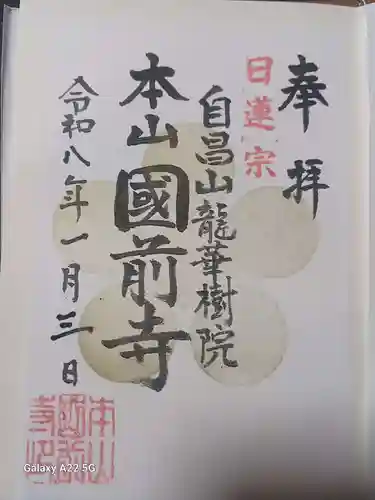 奉拝
日蓮宗
自昌山龍華樹院
本山國前寺
令和八年一月三日
本山
國前
寺印
Galaxy A22 5G